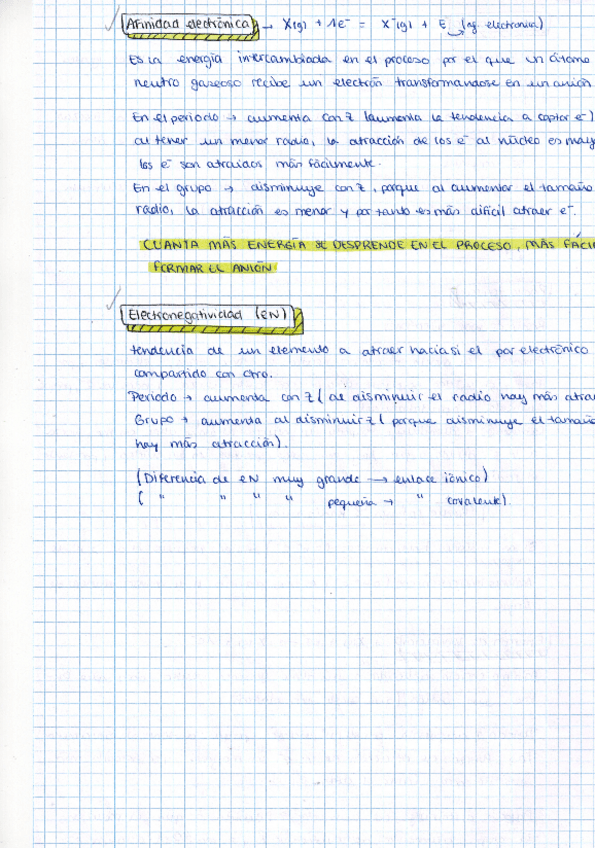 Afinidad electrónica → X(g) + 1e⁻ = X⁻(g) + E (af. electronica)
Es la energía intercambiada en el proceso por el que un átomo
neutro gaseoso recibe un electrón transformandose en un anión
En el periodo → aumenta con Z (aumenta la tendencia a captar e⁻)
al tener un menor radio, la atracción de los e⁻ al núcleo es may
los e⁻ son atraidos más fácilmente.
En el grupo → disminuye con Z, porque al aumentar el tamaño
radio, la atracción es menor y por tanto es más difícil atraer e⁻.
CUANTA MÁS ENERGÍA SE DESPRENDE EN EL PROCESO, MÁS FÁCI
FORMAR EL ANIÓN
Electronegatividad (EN)
tendencia de un elemento a atraer hacia si el par electrónico
compartido con otro.
Periodo → aumenta con Z (al disminuir el radio hay más atra
Grupo → aumenta al disminuir Z (porque disminuye el tamaño
hay más atracción).
(Diferencia de EN muy grande → enlace iónico)
( " " " " pequeña → " covalente).